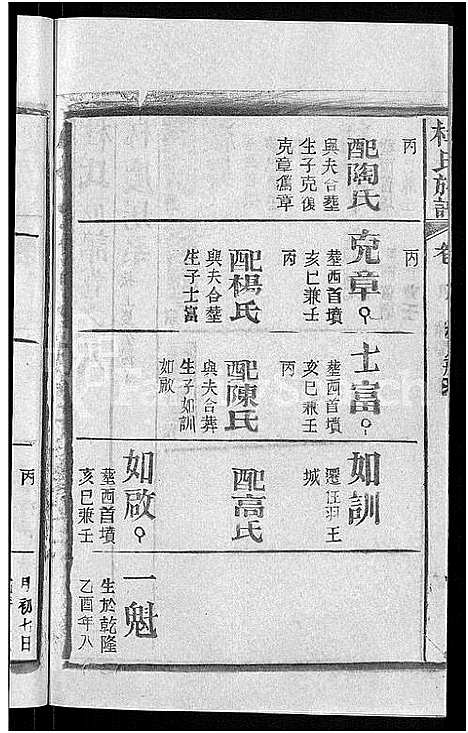 丙
配陶氏
與夫合塟
生子克復
克章鴈章
丙
克章
塟西首墳
亥巳兼壬
丙
配楊氏
與夫合塟
生子士富
士富
塟西首墳
亥巳兼壬
丙
配陳氏
與夫合葬
生子如訓
如啟
如訓
遷住羽王
城
配高氏
如啟
塟西首墳
亥巳兼壬
一魁
生於乾隆
乙酉年八
月初七日
丙
氏族譜
卷